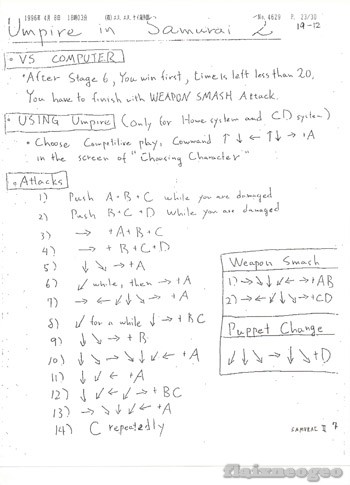 1996年 4月 8日 18時03分
No. 4629 P. 23/30
Umpire in Samurai 2
19-12
• VS COMPUTER
• After Stage 6, You win first, time is left less than 20.
You have to finish with WEAPON SMASH Attack.
• USING Umpire (Only for Home system and CD system)
• Choose Competitive play, Command ↑ ↓ ← ↑ ↓ → +A
in the screen of "Choosing Character"
• Attacks
1) Push A+B+C while you are damaged
2) Push B+C+D while you are damaged
3) → +A+B+C
4) → +B+C+D
5) ↓ ↘ → +A
6) ↙ while, then → +A
7) → ← ↙ ↓ ↘ → +A
8) ↙ for a while ↓ → +BC
9) ↓ ↘ → +B
10) ↓ ↘ → ↘ ↓ ↙ ← +A
11) ↓ ↙ ← +A
12) ↓ ↙ ← ↙ ↓ ← +BC
13) → ↘ ↓ ↙ ← +A
14) C repeatedly
Weapon Smash
1) → ↘ ↓ ↙ ← → +AB
2) → ← ↙ ↓ ↘ → +CD
Puppet Change
↙ ↓ ↘ → ↓ ↘ +D
SAMURAI II 7
flaizneogeo